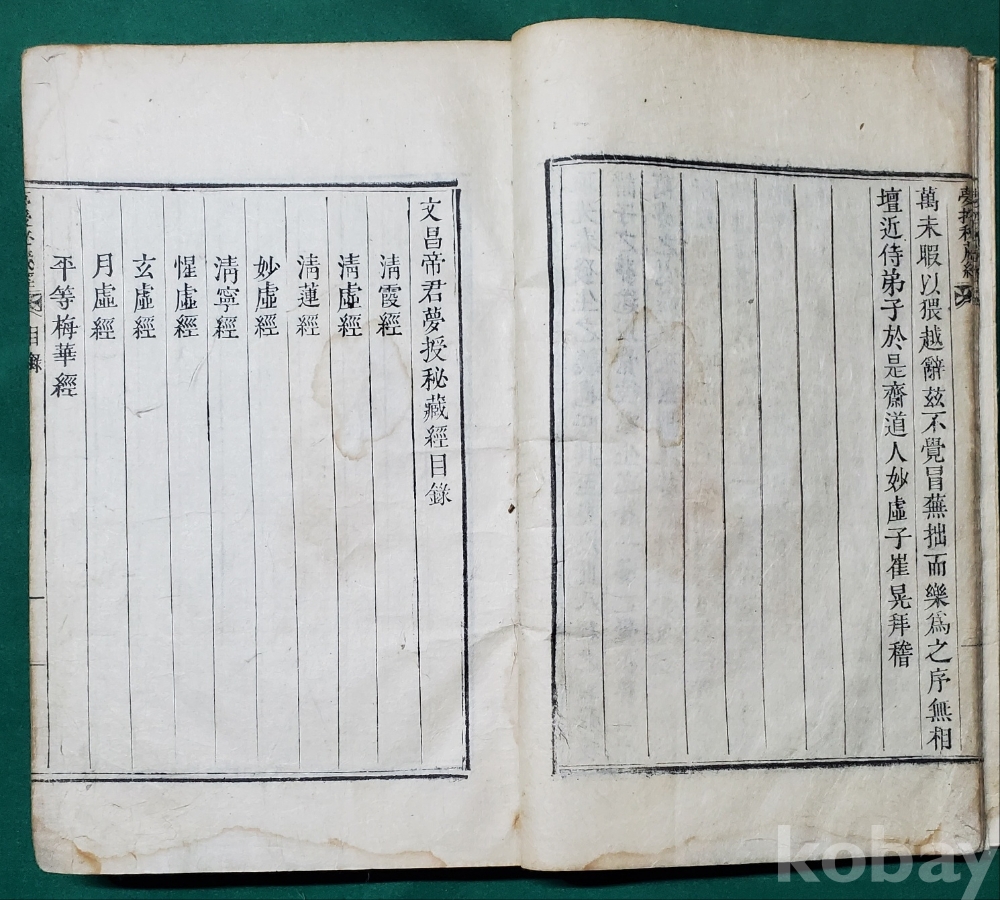 夢授秘藏經
萬未暇以猥越辭玆不覺冒蕪拙而樂爲之序無相
壇近侍弟子於是齋道人妙虛子崔晃拜稽
文昌帝君夢授秘藏經目錄
淸霞經
淸虛經
淸蓮經
妙虛經
淸寧經
惺虛經
玄虛經
月虛經
平等梅華經
目錄
kobay